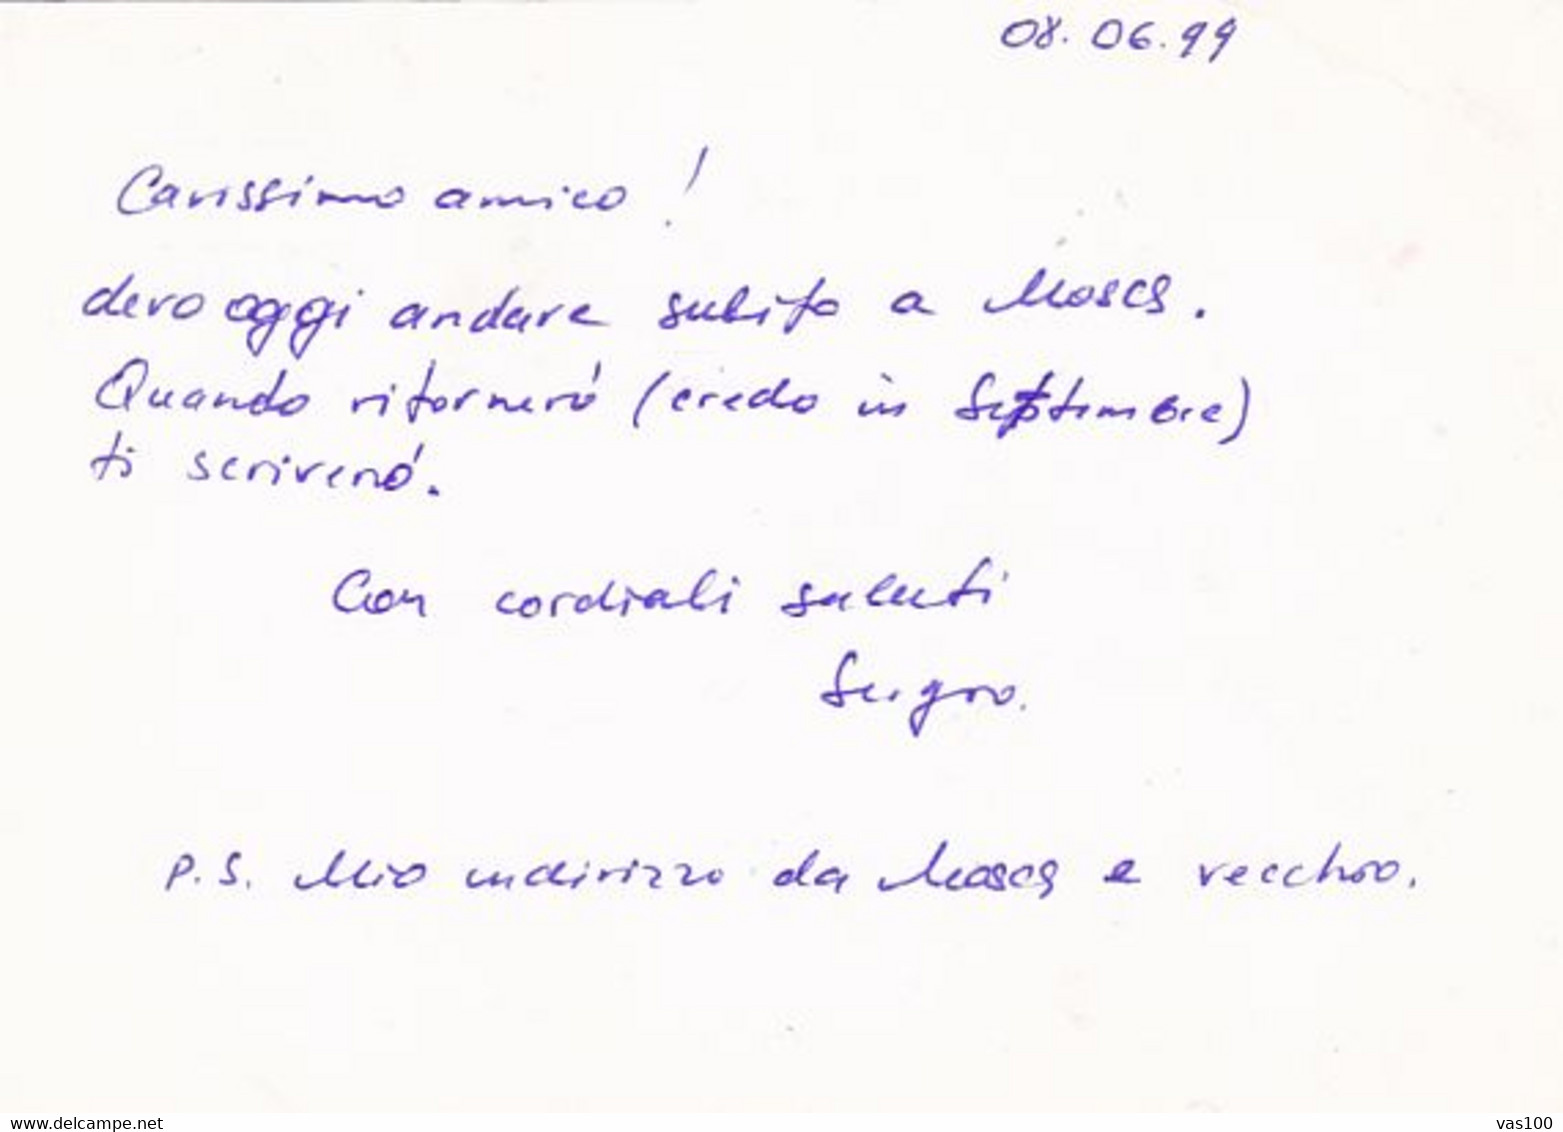 08.06.99
Carissimo amico!
devo oggi andare subito a Mosca.
Quando ritorneró (credo in Settembre)
ti scriveró.
Con cordiali saluti
Sergio.
P.S. Mio indirizzo da Mosca e vecchio.
www.delcampe.net
vas100